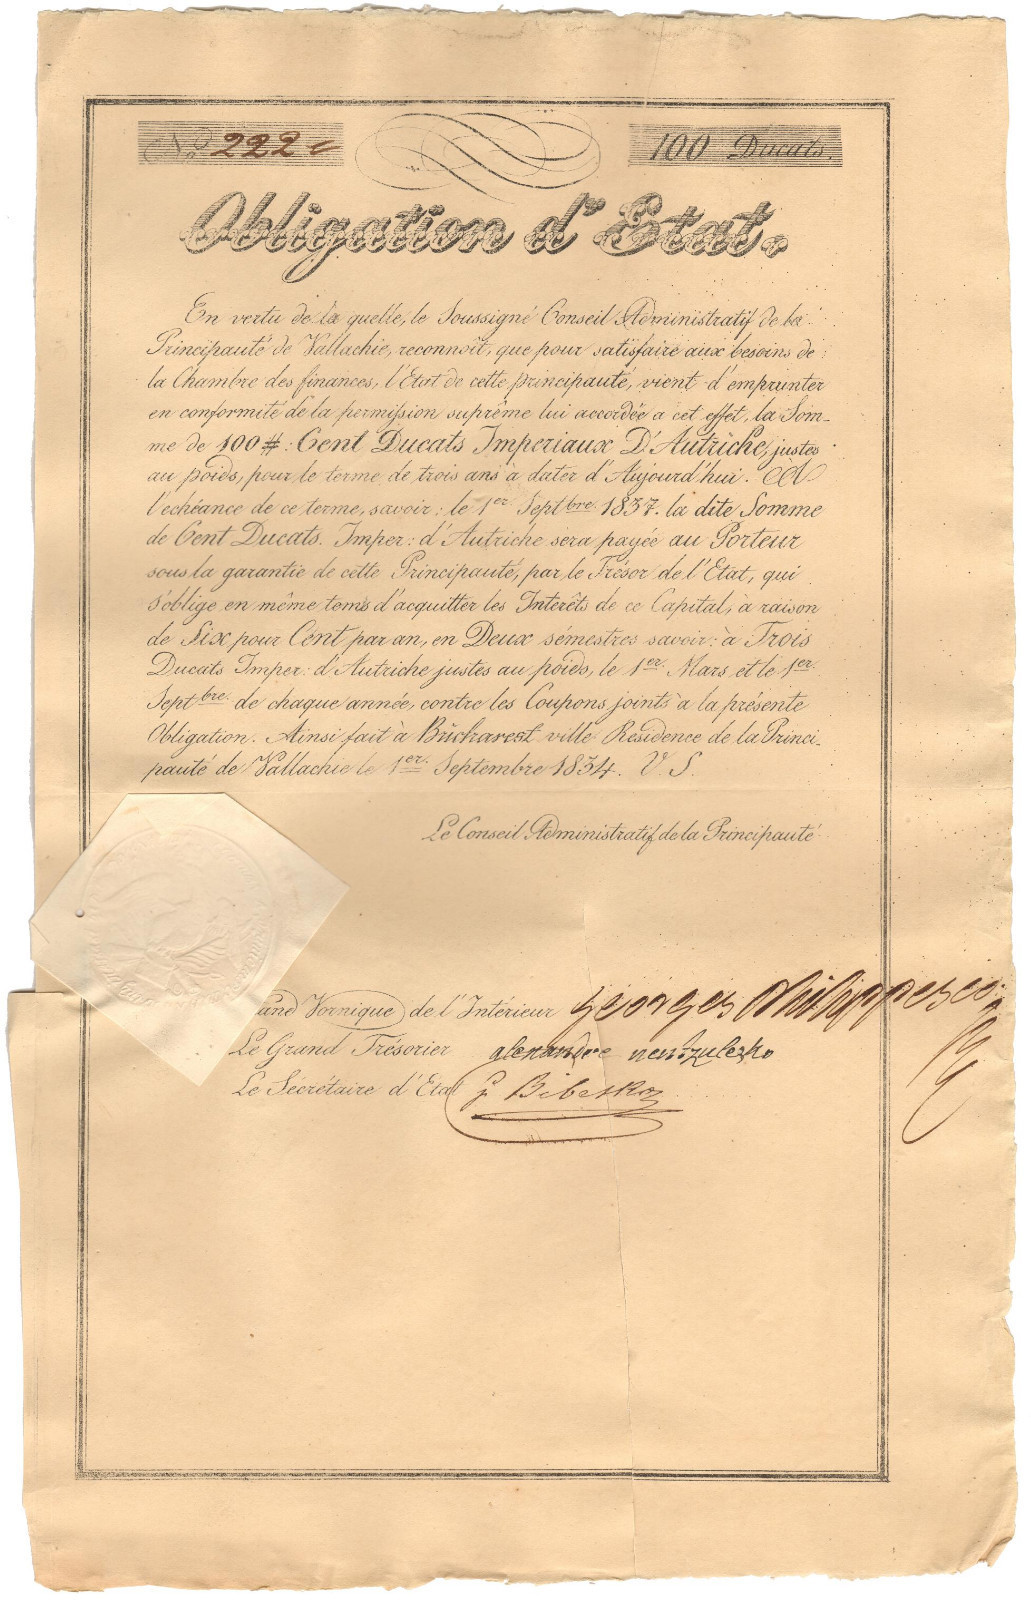 No. 222=
100 Ducats.
Obligation d'Etat.
En vertu de la quelle, le Soussigné Conseil Administratif de la
Principauté de Vallachie, reconnoit, que pour satisfaire aux besoins de
la Chambre des finances, l'Etat de cette principauté, vient d'emprunter
en conformité de la permission suprême lui accordée a cet effet, la Som-
me de 100 #: Cent Ducats Imperiaux D'Autriche, justes
au poids, pour le terme de trois ans à dater d'Aujourd'hui. A
l'echéance de ce terme, savoir: le 1er Septbre. 1837. la dite Somme
de Cent Ducats. Imper: d'Autriche sera payée au Porteur
sous la garantie de cette Principauté, par le Trésor de l'Etat, qui
s'oblige en même tems d'acquitter les Interêts de ce Capital, à raison
de Six pour Cent par an, en Deux sémestres savoir: à Trois
Ducats Imper: d'Autriche justes au poids, le 1er. Mars et le 1er.
Septbre. de chaque année, contre les Coupons joints à la présente
Obligation. Ainsi fait à Bucharest ville Residence de la Princi-
pauté de Vallachie le 1er. Septembre 1834. V. S.
Le Conseil Administratif de la Principauté
and Vornique de l'Intérieur Georges Philippesco
Le Grand Trésorier alexandre nentzulesko
Le Sécrétaire d'Etat G. Bibesko